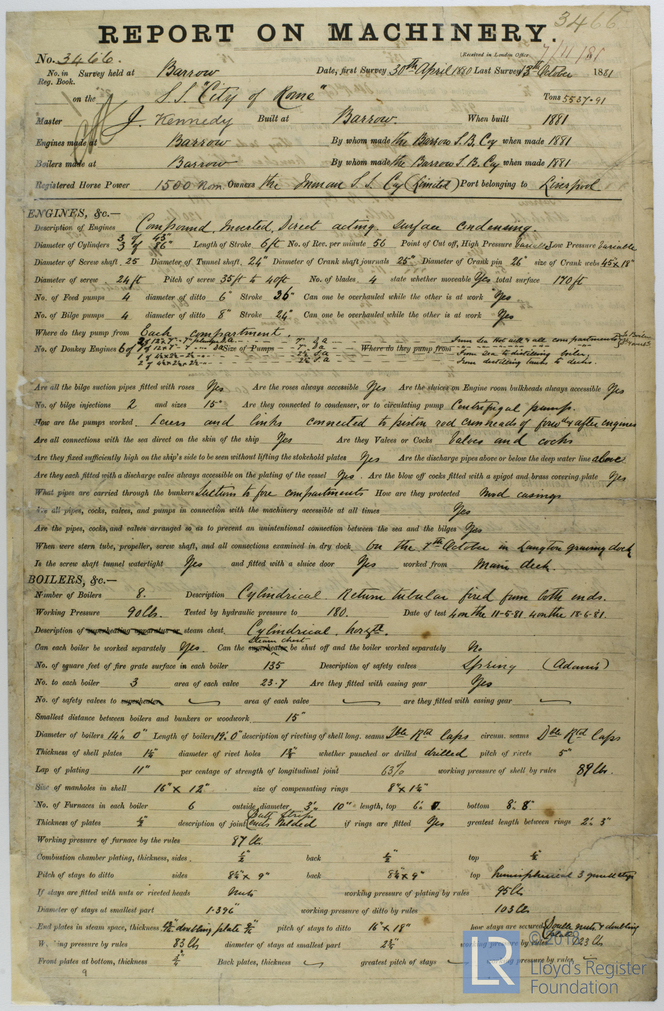 3466
REPORT ON MACHINERY.
No. 3466. (Received in London Office 7/11/81
No. in Survey held at Barrow Date, first Survey 30th April 1880 Last Survey 13th October 1881
Reg. Book.
on the S.S. "City of Rome" Tons 5537.91
Master J. Kennedy Built at Barrow. When built 1881
Engines made at Barrow By whom made the Barrow S.B. Cy when made 1881
Boilers made at Barrow By whom made the Barrow S.B. Cy when made 1881
Registered Horse Power 1500 nom Owners the Inman S.S. Cy (Limited) Port belonging to Liverpool
ENGINES, &c.—
Description of Engines Compound, Inverted, Direct acting surface condensing.
Diameter of Cylinders 3 of 43" 3 of 86" Length of Stroke 6ft No. of Rev. per minute 56 Point of Cut off, High Pressure Variable Low Pressure Variable
Diameter of Screw shaft 25 Diameter of Tunnel shaft 24" Diameter of Crank shaft journals 25" Diameter of Crank pin 26" size of Crank webs 45 x 18"
Diameter of screw 24ft Pitch of screw 35ft to 40ft No. of blades 4 state whether moveable Yes total surface 170ft
No. of Feed pumps 4 diameter of ditto 6" Stroke 36" Can one be overhauled while the other is at work Yes
No. of Bilge pumps 4 diameter of ditto 8" Stroke 24" Can one be overhauled while the other is at work Yes
Where do they pump from Each compartment.
No. of Donkey Engines 6 Size of Pumps Where do they pump from From sea Hot well & all compartments
From sea to distilling boiler
From distilling tanks to decks.
Are all the bilge suction pipes fitted with roses Yes Are the roses always accessible Yes Are the sluices on Engine room bulkheads always accessible Yes
No. of bilge injections 2 and sizes 15" Are they connected to condenser, or to circulating pump Centrifugal pumps.
How are the pumps worked Levers and links connected to piston rod crossheads of forwd & after engines
Are all connections with the sea direct on the skin of the ship Yes Are they Valves or Cocks Valves and cocks
Are they fixed sufficiently high on the ship's side to be seen without lifting the stokehold plates Yes Are the discharge pipes above or below the deep water line above
Are they each fitted with a discharge valve always accessible on the plating of the vessel Yes Are the blow off cocks fitted with a spigot and brass covering plate Yes
What pipes are carried through the bunkers Suctions to fore compartments How are they protected Wood casings
Are all pipes, cocks, valves, and pumps in connection with the machinery accessible at all times Yes
Are the pipes, cocks, and valves arranged so as to prevent an unintentional connection between the sea and the bilges Yes
When were stern tube, propeller, screw shaft, and all connections examined in dry dock On the 7th October in Langton graving dock
Is the screw shaft tunnel watertight Yes and fitted with a sluice door Yes worked from Main deck.
BOILERS, &c.—
Number of Boilers 8. Description Cylindrical Return tubular fired from both ends.
Working Pressure 90 lbs. Tested by hydraulic pressure to 180. Date of test 4 on the 11-5-81 4 on the 18-6-81.
Description of superheating apparatus or steam chest. Cylindrical horizl.
Can each boiler be worked separately Yes. Can the superheater steam chest be shut off and the boiler worked separately No
No. of square feet of fire grate surface in each boiler 135 Description of safety valves Spring (Adams)
No. to each boiler 3 area of each valve 23.7 Are they fitted with easing gear Yes
No. of safety valves to superheater area of each valve are they fitted with easing gear
Smallest distance between boilers and bunkers or woodwork 15"
Diameter of boilers 14' 0" Length of boilers 19' 0" description of riveting of shell long. seams Dble Rtd Laps circum. seams Dble Rtd Laps
Thickness of shell plates 1¼ diameter of rivet holes whether punched or drilled drilled pitch of rivets 5"
Lap of plating 11" per centage of strength of longitudinal joint 63% working pressure of shell by rules 89 lbs.
Size of manholes in shell 16" x 12" size of compensating rings 8" x 1¼"
No. of Furnaces in each boiler 6 outside diameter 3' 10" length, top 6' 0 bottom 8' 8"
Thickness of plates ½ description of joint Butt Strip Ends Welded if rings are fitted Yes greatest length between rings 2' 3"
Working pressure of furnace by the rules 87 lbs
Combustion chamber plating, thickness, sides ½" back ½" top ½"
Pitch of stays to ditto sides 8¼ x 9" back 8¼ x 9" top
If stays are fitted with nuts or riveted heads Nuts working pressure of plating by rules 95 lbs
Diameter of stays at smallest part 1.396" working pressure of ditto by rules 103 lbs
End plates in steam space, thickness doubling plate pitch of stays to ditto 16" x 18" how stays are secured Double nuts & doubling plates
Working pressure by rules 83 lbs diameter of stays at smallest part 2½ working pressure by rules 123 lbs
Front plates at bottom, thickness ¾" Back plates, thickness greatest pitch of stays working pressure by rules
9
LR
© 2018
Lloyd's Register
Foundation